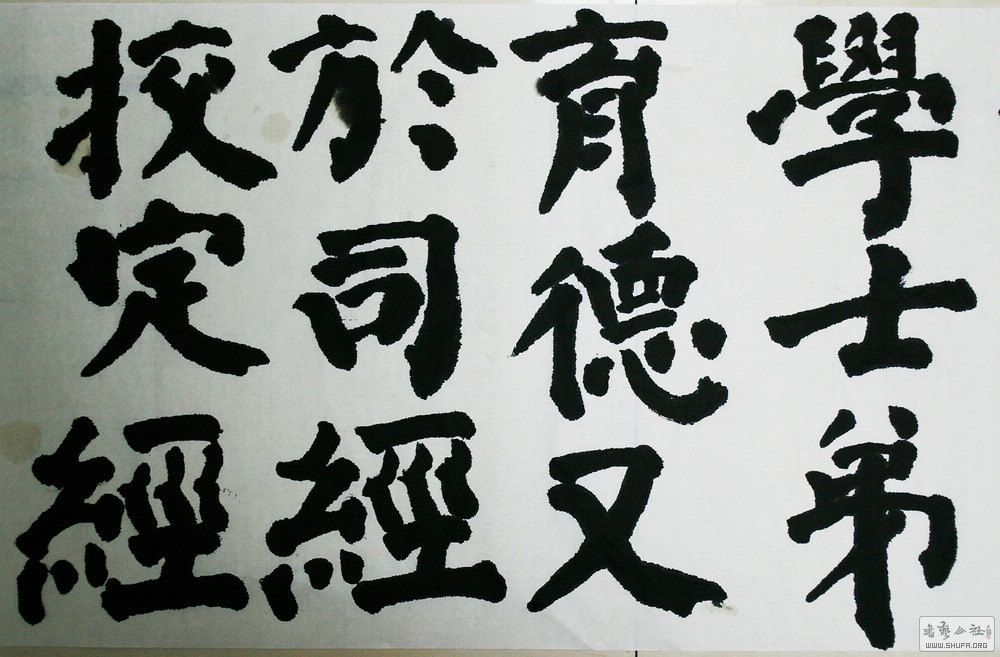 學士弟
育德又
於司經
挍定經
書艺公社
WWW.SHUFA.ORG